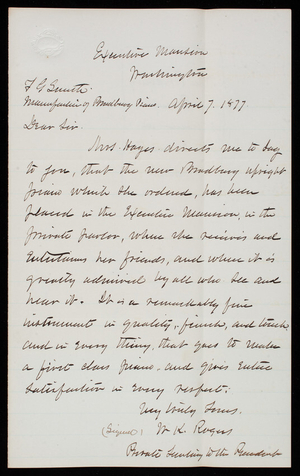 Executive Mansion
Washington
F. G. Smith.
Manufacturer of Bradbury Piano. April 7. 1877
Dear Sir
Mrs. Hayes directs me to say
to you, that the new Bradbury upright
piano which she ordered, has been
placed in the Executive Mansion, in the
private parlor, where she receives and
entertains her friends, and where it is
greatly admired by all who see and
hear it. It is a remarkably fine
instrument in quality, finish, and touch,
and in every thing, that goes to make
a first class piano. and gives entire
satisfaction in every respect.
Very truly Yours.
(Signed) W. K. Rogers
Private Secretary to the President